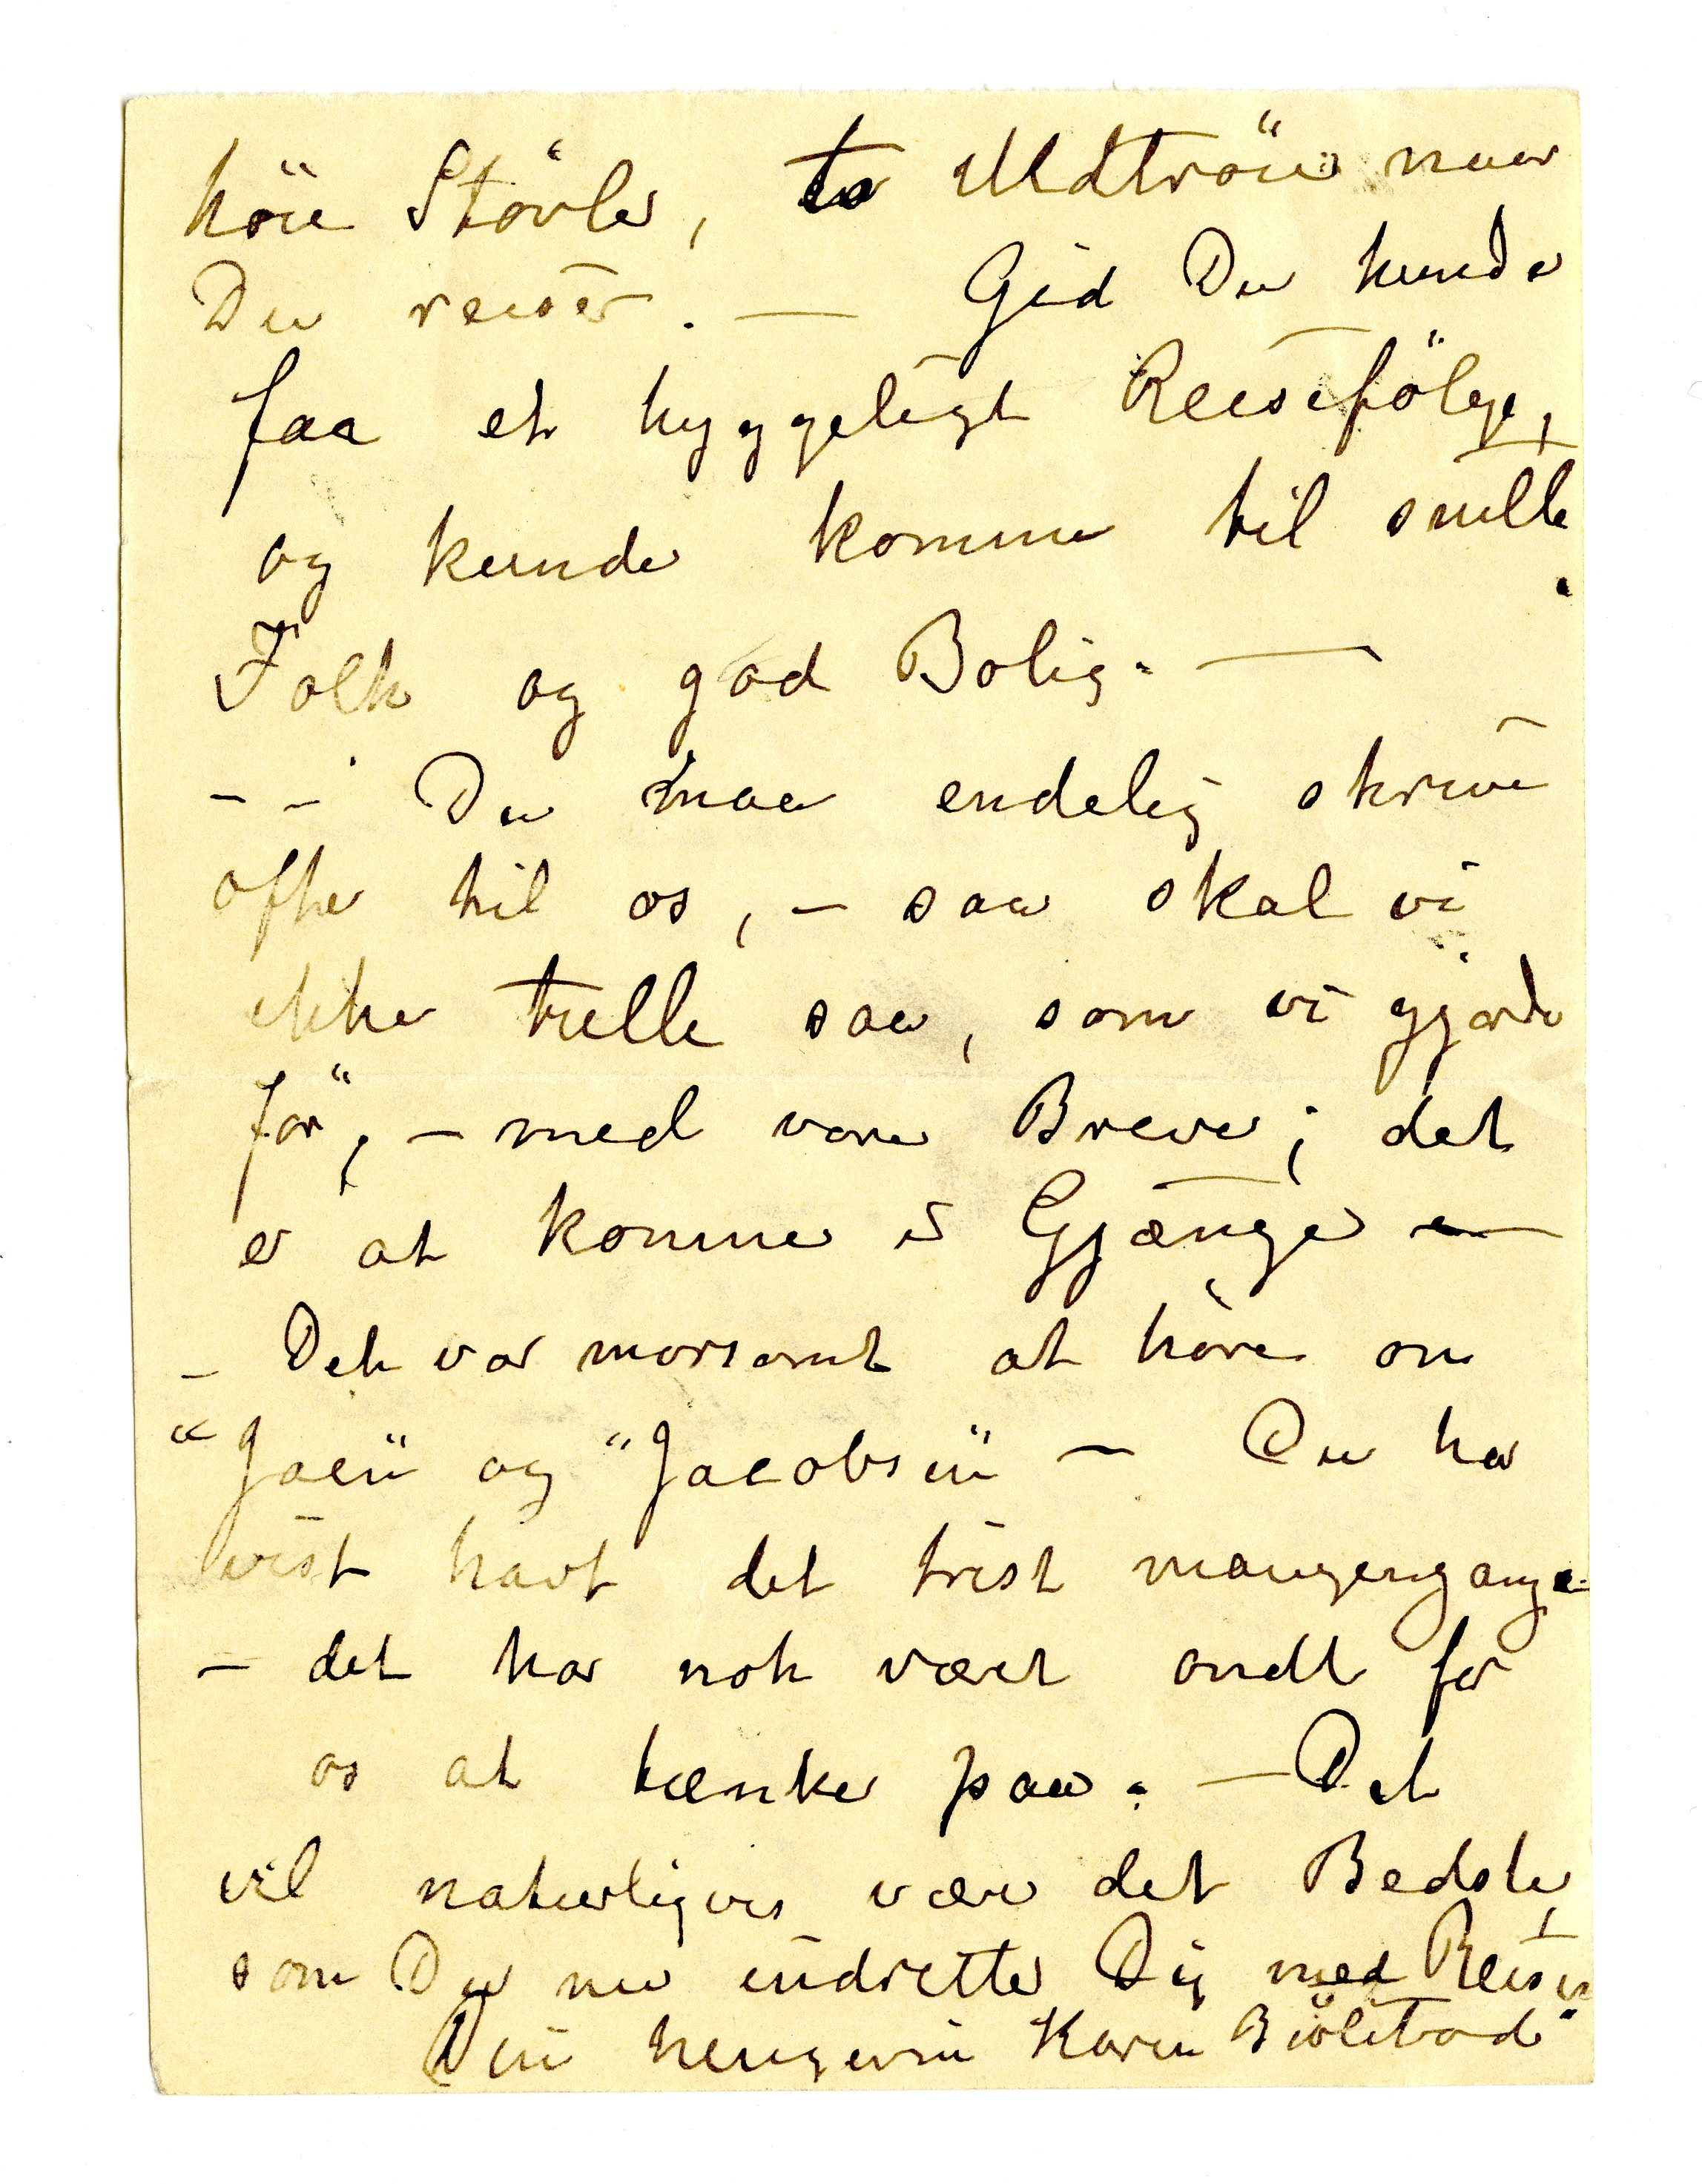 höie Støvler, to Uldtröier naar
Du reiser. — Gid Du kunde
faa et hyggeligt Reisefölge,
og kunde komme til snille
Folk og god Bolig. —
-- Du maa endelig skrive
ofte til os, – saa skal vi
ikke tulle saa, som vi gjorde
för, – med vore Breve; det
er at komme i Gjænge —
– Det var morsomt at høre om
"Jaen" og "Jacobsen" – Du har
vist havt det trist mangengang
– det har nok været ondt for
os at tænke paa. – Det
vil naturligvis være det Bedste,
som Du nu indretter Dig med Reisen.
Din hengivne Karen